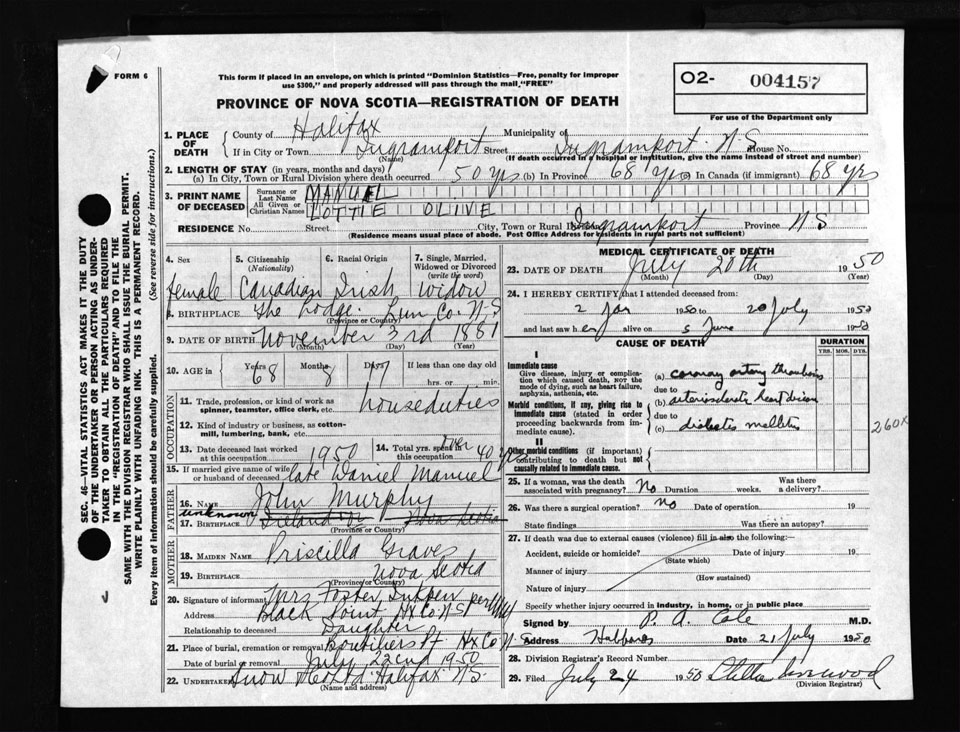 FORM 6
This form if placed in an envelope, on which is printed "Dominion Statistics—Free, penalty for improper
use $300," and properly addressed will pass through the mail "FREE"
PROVINCE OF NOVA SCOTIA—REGISTRATION OF DEATH
O2- 004157
For use of the Department only
SEC. 46—VITAL STATISTICS ACT MAKES IT THE DUTY
OF THE UNDERTAKER OR PERSON ACTING AS UNDER-
TAKER TO OBTAIN ALL THE PARTICULARS REQUIRED
IN THE "REGISTRATION OF DEATH" AND TO FILE THE
SAME WITH THE DIVISION REGISTRAR WHO SHALL ISSUE THE BURIAL PERMIT.
WRITE PLAINLY WITH UNFADING INK. THIS IS A PERMANENT RECORD.
Every item of information should be carefully supplied. (See reverse side for instructions.)
1. PLACE OF DEATH
County of Halifax Municipality of
If in City or Town Ingramport Street Ingramport N.S House No.
(Name) (If death occurred in a hospital or institution, give the name instead of street and number)
2. LENGTH OF STAY (in years, months and days)
(a) In City, Town or Rural Division where death occurred 50 yrs (b) In Province 68 yrs (c) In Canada (if immigrant) 68 yrs
3. PRINT NAME OF DECEASED
Surname or Last Name MANUEL
All Given or Christian Names LOTTIE OLIVE
RESIDENCE No. Street City, Town or Rural Division Ingramport Province N S
(Residence means usual place of abode. Post Office Address for residents in rural parts not sufficient)
4. Sex 5. Citizenship (Nationality) 6. Racial Origin 7. Single, Married, Widowed or Divorced (write the word)
Female Canadian Irish Widow
8. BIRTHPLACE The Lodge. Lun. Co. N.S
(Province or Country)
9. DATE OF BIRTH November 3rd 1881
(Month) (Day) (Year)
10. AGE in Years 68 Months 8 Days 17 If less than one day old hrs. or min.
OCCUPATION
11. Trade, profession or kind of work as spinner, teamster, office clerk, etc. houseduties
12. Kind of industry or business, as cotton-mill, lumbering, bank, etc.
13. Date deceased last worked at this occupation 1950 14. Total yrs. spent in this occupation over 40 yrs
15. If married give name of wife or husband of deceased late Daniel Manuel
FATHER
16. Name John Murphy
unknown
17. Birthplace Ireland or Nova Scotia
(Province or Country)
MOTHER
18. MAIDEN NAME Priscilla Graves
19. BIRTHPLACE Nova Scotia
(Province or Country)
20. Signature of informant Mrs Foster
Address Black Point Hx Co N S
Relationship to deceased Daughter
21. Place of burial, cremation or removal Boutiliers Pt Hx Co N S
Date of burial or removal July 22nd 1950
22. Undertaker Snow & Co Ltd. Halifax N.S.
(Name and address)
MEDICAL CERTIFICATE OF DEATH
23. DATE OF DEATH July 20th 1950
(Month) (Day) (Year)
24. I HEREBY CERTIFY that I attended deceased from:
2 Jan 1950 to 20 July 1950
and last saw her alive on 5 June 1950
CAUSE OF DEATH DURATION
YRS. MOS. DYS.
I
Immediate cause
Give disease, injury or complication which caused death, not the mode of dying, such as heart failure, asphyxia, asthenia, etc.
(a) coronary artery thrombosis
due to
Morbid conditions, if any, giving rise to immediate cause (stated in order proceeding backwards from immediate cause).
(b) arteriosclerotic heart disease
due to
(c) diabetes mellitus
260X
II
Other morbid conditions (if important) contributing to death but not causally related to immediate cause.
25. If a woman, was the death associated with pregnancy? No Duration weeks. Was there a delivery?
26. Was there a surgical operation? no Date of operation 19
State findings Was there an autopsy?
27. If death was due to external causes (violence) fill in also the following:—
Accident, suicide or homicide? Date of injury 19
(State which)
Manner of injury
(How sustained)
Nature of injury
Specify whether injury occurred in industry, in home, or in public place
Signed by P. A. Cole M.D.
Address Hubbards Date 21 July 1950
28. Division Registrar's Record Number
29. Filed July 24 1950
(Division Registrar)